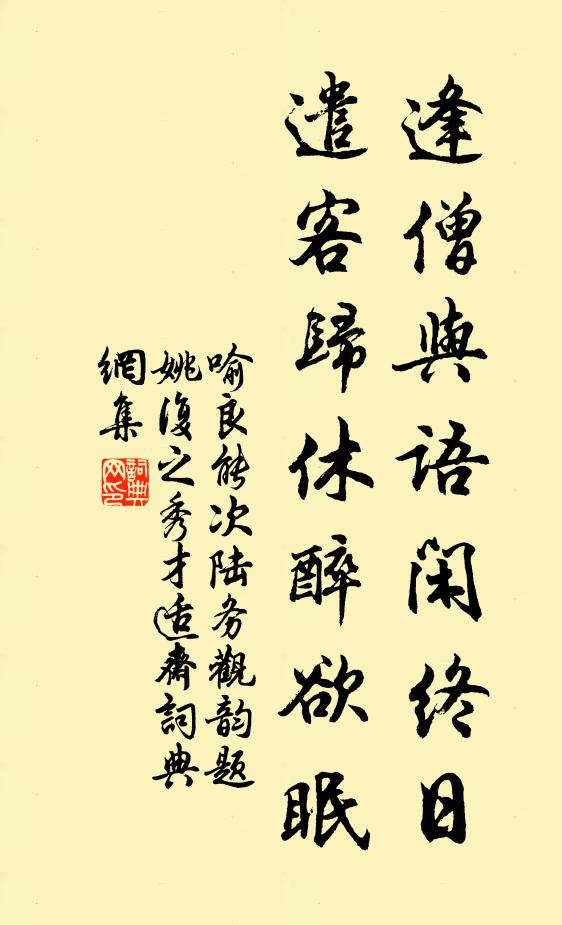 逢僧與語閑終日
遣客歸休醉欲眠
喻良能次陆务觀韵题
姚復之秀才适齋詞典
網集
詞典
网印